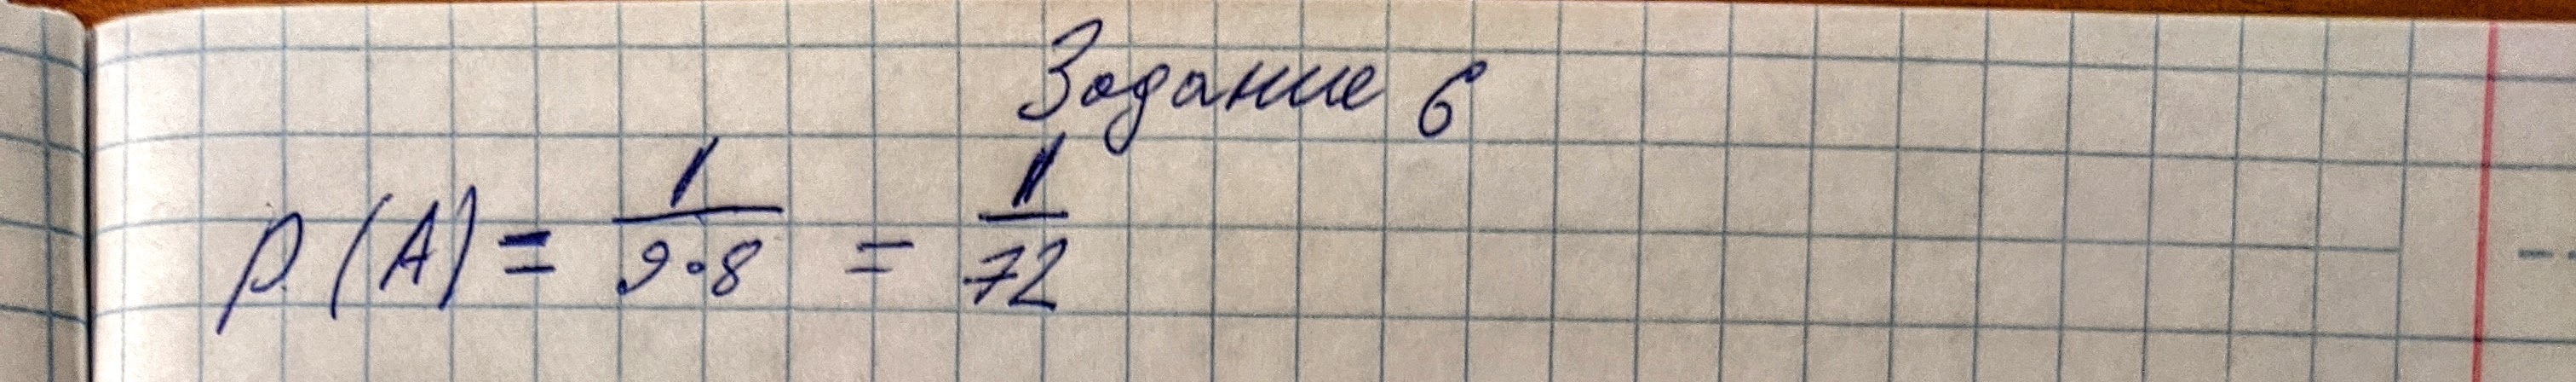 Задание 6
p(A) = 1/9·8 = 1/72